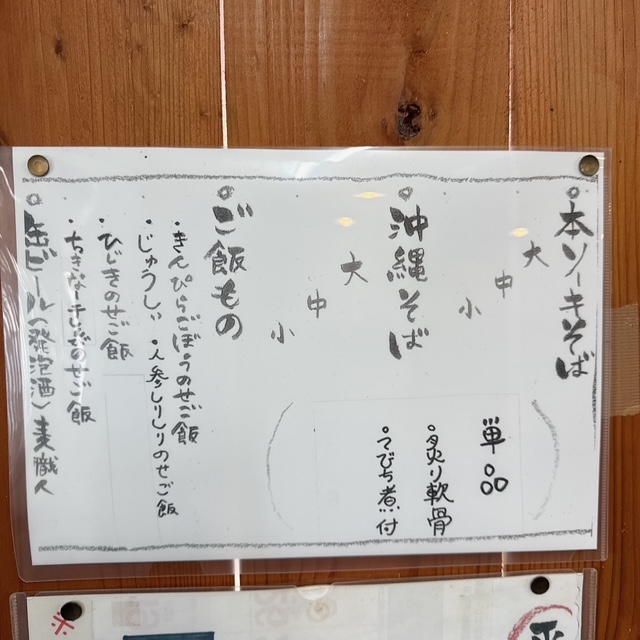 本ソーキそば
大
中
小
沖縄そば
大
中
小
単品
・炙り軟骨
・てびち煮付
ご飯もの
・きんぴらごぼうのせご飯
・じゅうしぃ ・人参しりしりのせご飯
・ひじきのせご飯
・ちきなーチャーのせご飯
缶ビール(発泡酒)麦職人